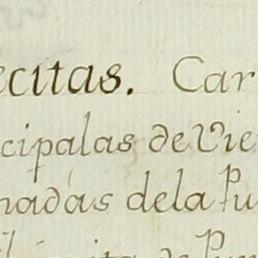 ecitas. Car
cipalas de Vie
nadas dela Pu